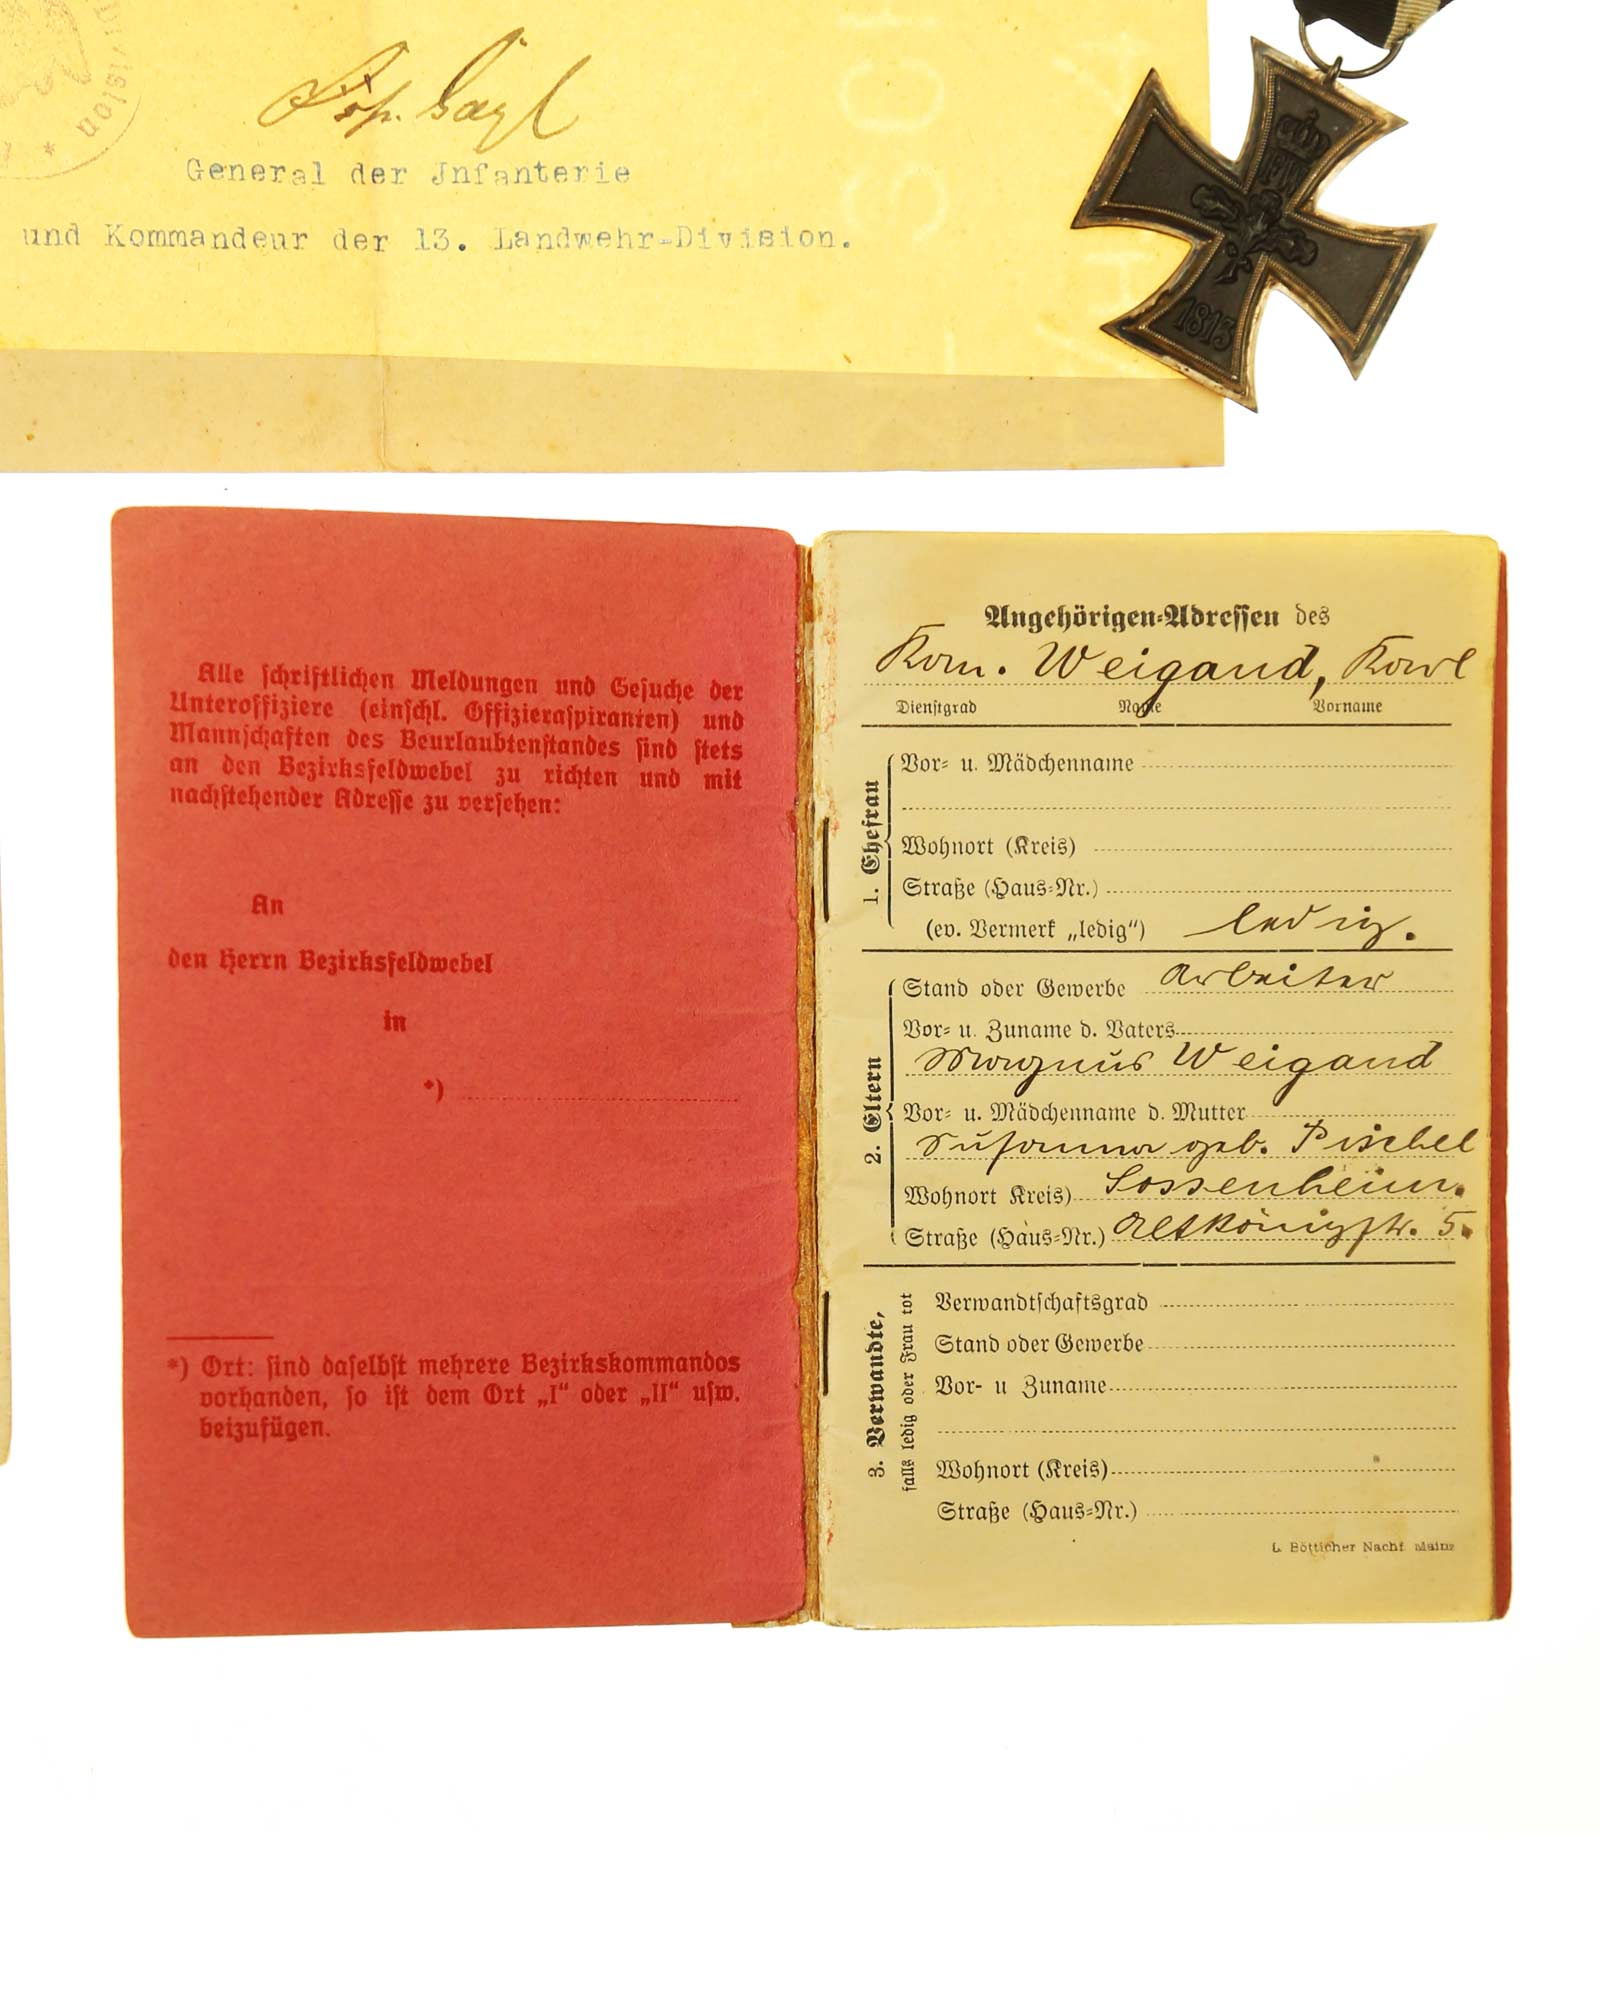 Division *
General der Jnfanterie
und Kommandeur der 13. Landwehr-Division.
FW
1813
Alle schriftlichen Meldungen und Gesuche der
Unteroffiziere (einschl. Offizieraspiranten) und
Mannschaften des Beurlaubtenstandes sind stets
an den Bezirksfeldwebel zu richten und mit
nachstehender Adresse zu versehen:
An
den Herrn Bezirksfeldwebel
in
*)
*) Ort: sind daselbst mehrere Bezirkskommandos
vorhanden, so ist dem Ort „I“ oder „II“ usw.
beizufügen.
Angehörigen-Adressen des
Kan. Weigand, Karl
Dienstgrad Name Vorname
1. Ehefrau
Vor- u. Mädchenname
Wohnort (Kreis)
Straße (Haus-Nr.)
(ev. Vermerk „ledig“) ledig.
2. Eltern
Stand oder Gewerbe Arbeiter
Vor- u. Zuname d. Vaters
Magnus Weigand
Vor- u. Mädchenname d. Mutter
Susanna geb. Pischel
Wohnort Kreis) Sossenheim.
Straße (Haus-Nr.) Altkönigstr. 5.
3. Verwandte,
falls ledig oder Frau tot
Verwandtschaftsgrad
Stand oder Gewerbe
Vor- u Zuname
Wohnort (Kreis)
Straße (Haus-Nr.)
L. Bötticher Nachf. Mainz